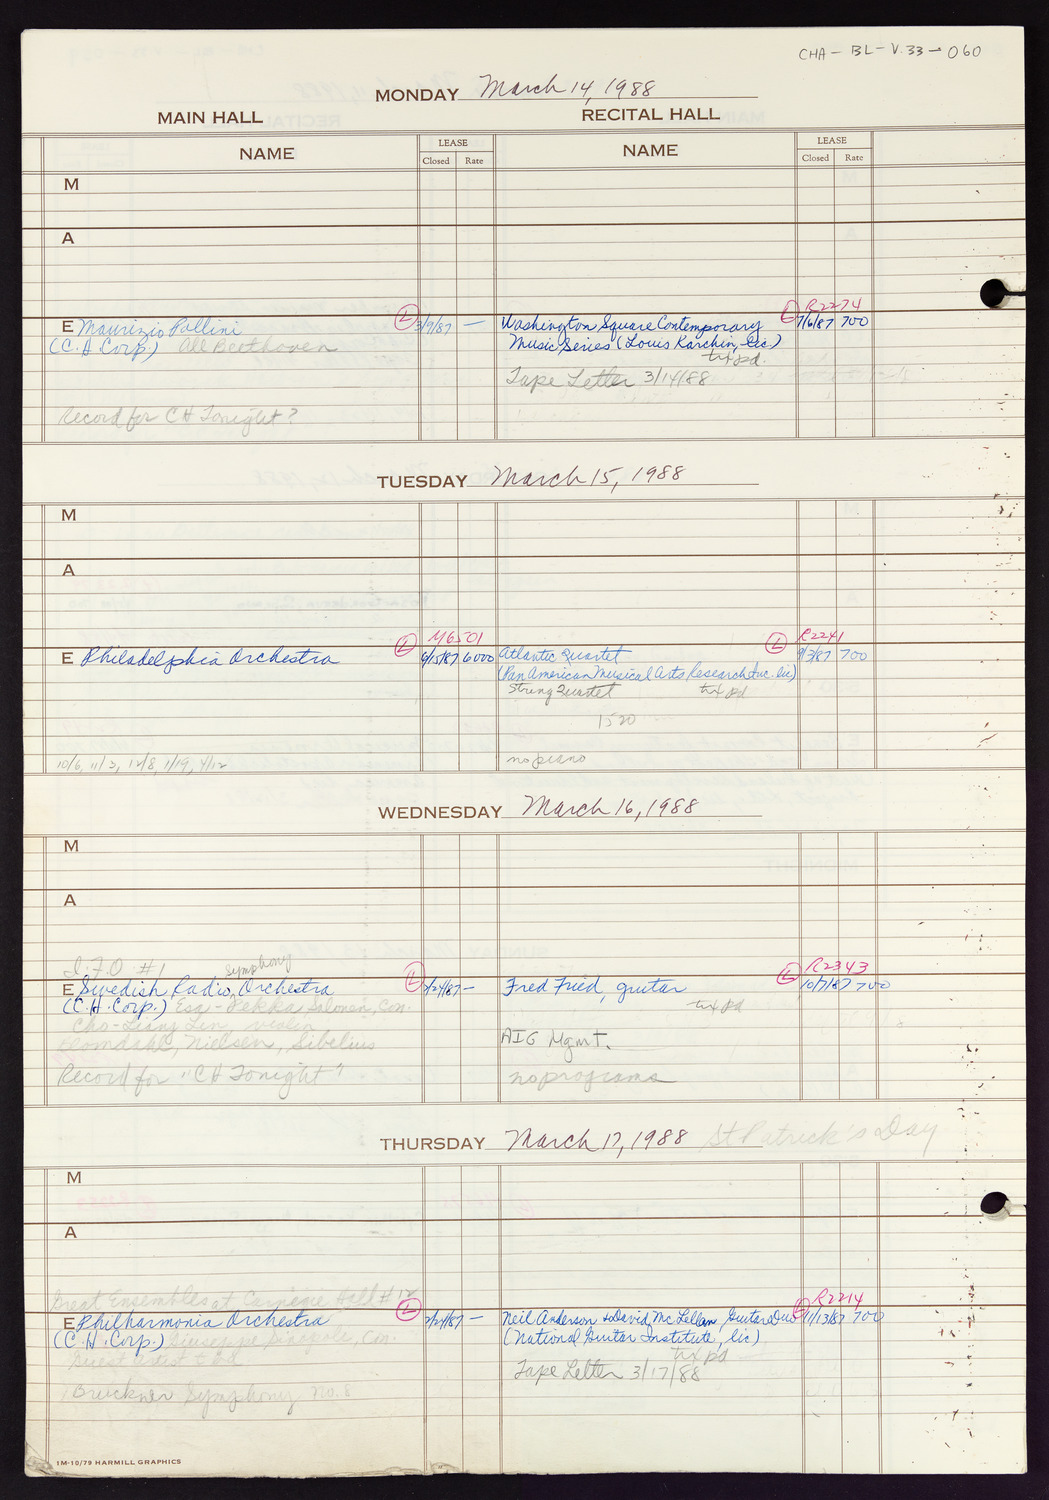 CHA - BL - V.33 - 060
MONDAY March 14, 1988
MAIN HALL RECITAL HALL
NAME LEASE NAME LEASE
Closed Rate Closed Rate
M
A
R2274
E Maurizio Pollini L 3/9/87 — Washington Square Contemporary L 7/6/87 700
(C.H. Corp.) All Beethoven Music Series (Louis Karchin, lic.)
txt pd.
Tape Letter 3/14/88
Record for CH Tonight?
TUESDAY March 15, 1988
M
A
M6501 R2241
E Philadelphia Orchestra L 6/15/87 6000 Atlantic Quartet L 9/3/87 700
(Pan American Musical Arts Research Inc. lic)
String Quartet txt pd
1520
10/6, 11/3, 12/8, 1/19, 4/12 no piano
WEDNESDAY March 16, 1988
M
A
I.F.O #1 Symphony R2343
E Swedish Radio Orchestra L 2/24/87 — Fred Fried, guitar L 10/7/87 700
(C.H. Corp.) Esa-Pekka Salonen, Con. txt pd
Cho-Liang Lin, violin
Blomdahl, Nielsen, Sibelius AIG Mgmt.
Record for "CH Tonight" no programs
THURSDAY March 17, 1988 St Patrick's Day
M
A
Great Ensembles at Carnegie Hall #12 R2214
E Philharmonia Orchestra L 2/24/87 — Neil Anderson & David McLellan, Guitar Duo L 11/13/87 700
(C.H. Corp.) Giuseppe Sinopoli, Con. (National Guitar Institute, lic)
Guest artist tbd txt pd
Tape Letter 3/17/88
Bruckner Symphony no. 8
1M-10/79 HARMILL GRAPHICS